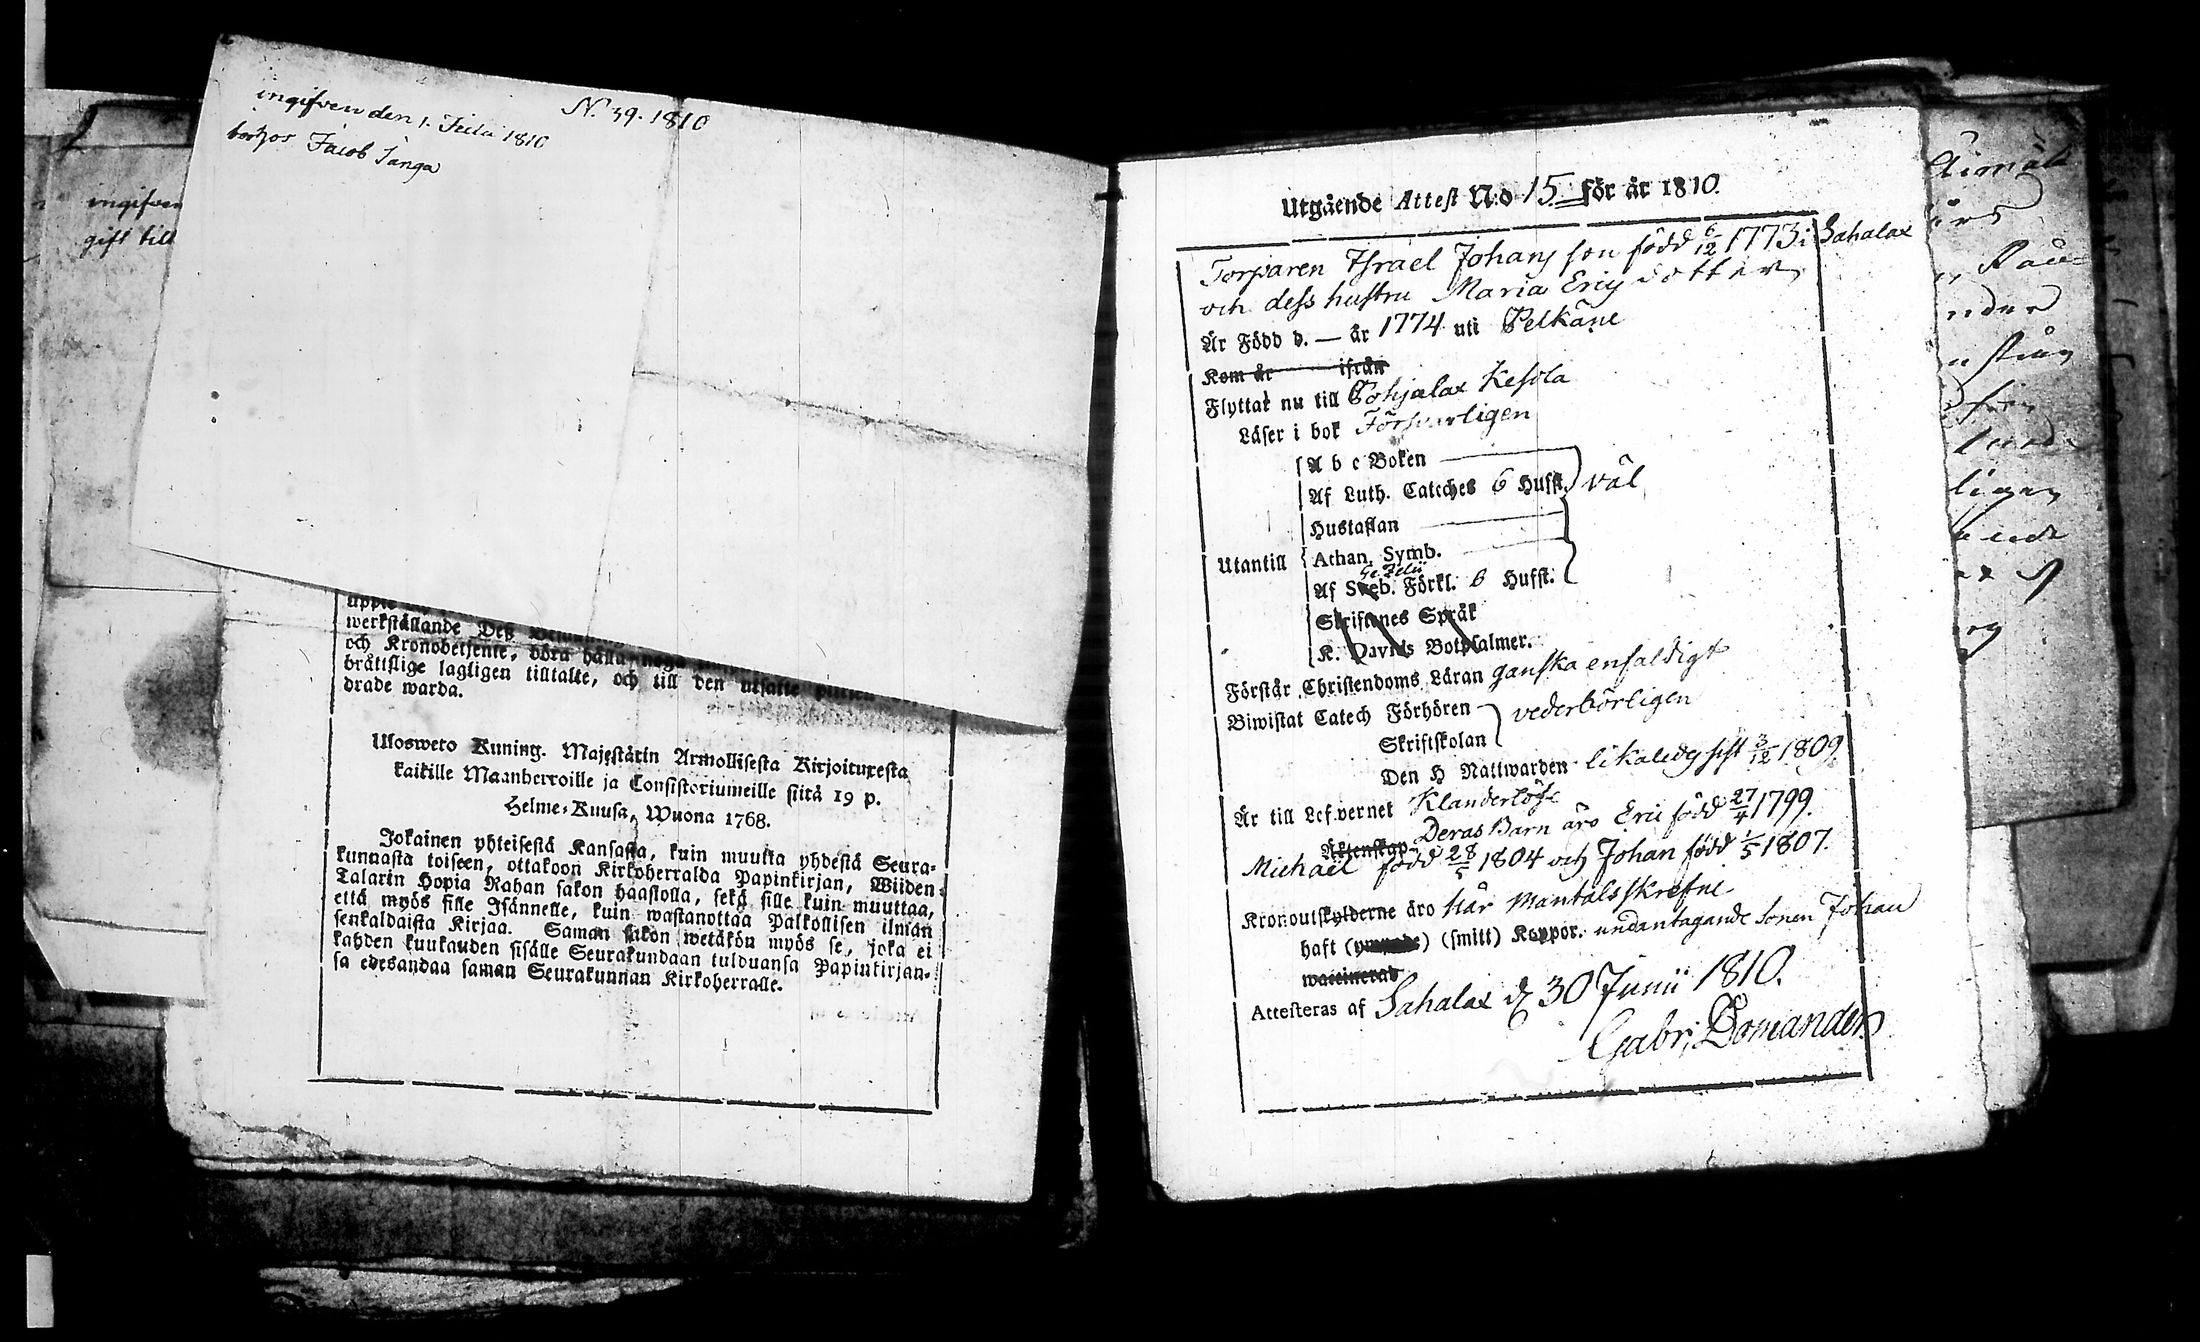 ingifven den 1. Julii 1810
N. 39. 1810
bort hos Jacob Sånga
ingifven
gift till
werkställande
och Kronobetjente, böra
bråttslige lagligen tilltalte, och till den utsatte plikten
drade warda.
Ulosweto Kuning. Majestätin Armollisesta Kirjoituxesta
kaikille Maanherroille ja Consistoriumeille siitä 19 p.
Helme-Kuusa, Wuona 1768.
Jokainen yhteisestä Kansasta, kuin muutta yhdestä Seura-
kunnasta toiseen, ottakoon Kirkoherralda Papinkirjan, Wiiden
Talarin Hopia Rahan sakon haastolla, sekä sille kuin muuttaa,
että myös sille Isännelle, kuin wastanottaa Palkollisen ilman
senkaldaista Kirjaa. Saman sakon wetäkön myös se, joka ei
kahden kuukauden sisälle Seurakundaan tulduansa Papinkirjan-
sa edesandaa saman Seurakunnan Kirkoherralle.
Utgående Attest N:o 15 för år 1810.
Torparen Israel Johansson född 6/12 1773 i Sahalax
och dess hustru Maria Ericsdotter
Är Född d. — år 1774 uti Pelkäne
Kom år ifrån
Flyttar nu till Pohjalax Kesola
Läser i bok Försvarligen
A b c Boken
Af Luth. Catches 6 Hufst. väl
Hustaflan
Utantill Athan. Symb.
Gezelii
Af Sweb. Förkl. 6 Hufst.
Skriftenes Språk
K. Davids Botpsalmer.
Förstår Christendoms Läran ganska enfaldigt
Biwistat Catech Förhören vederbörligen
Skriftskolan
Den H Nattwarden likaledes sist 3/12 1809
Är till Lefvernet Klanderlöse
Äktenskap Deras Barn äro Eric född 27/4 1799.
Michaël född 28/5 1804 och Johan född 1/5 1807.
Kronoutskylderne äro här Mantalsskrefne
haft (ympade) (smitt) Koppor. undantagande Sonen Johan
waccinerad
Attesteras af Sahalax d 30 Junii 1810.
Gabr. Bomander